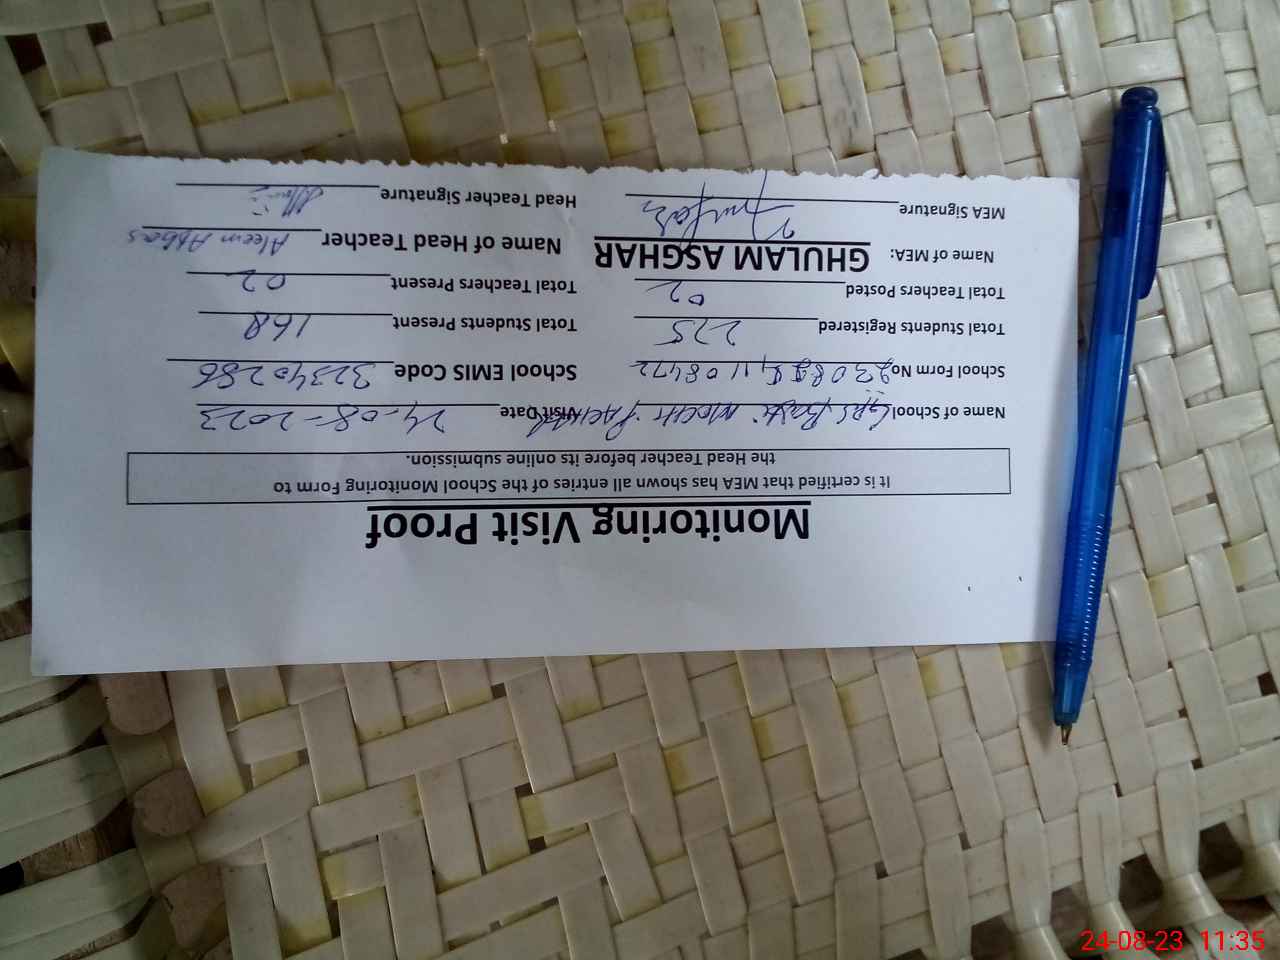 Monitoring Visit Proof
It is certified that MEA has shown all entries of the School Monitoring Form to
the Head Teacher before its online submission.
Name of School GPS Basti Mochi Visit Date 24-08-2023
School Form No School EMIS Code 32340286
Total Students Registered 225 Total Students Present 168
Total Teachers Posted 02 Total Teachers Present 02
Name of MEA: GHULAM ASGHAR Name of Head Teacher Aleem Abbas
MEA Signature Head Teacher Signature
24-08-23 11:35